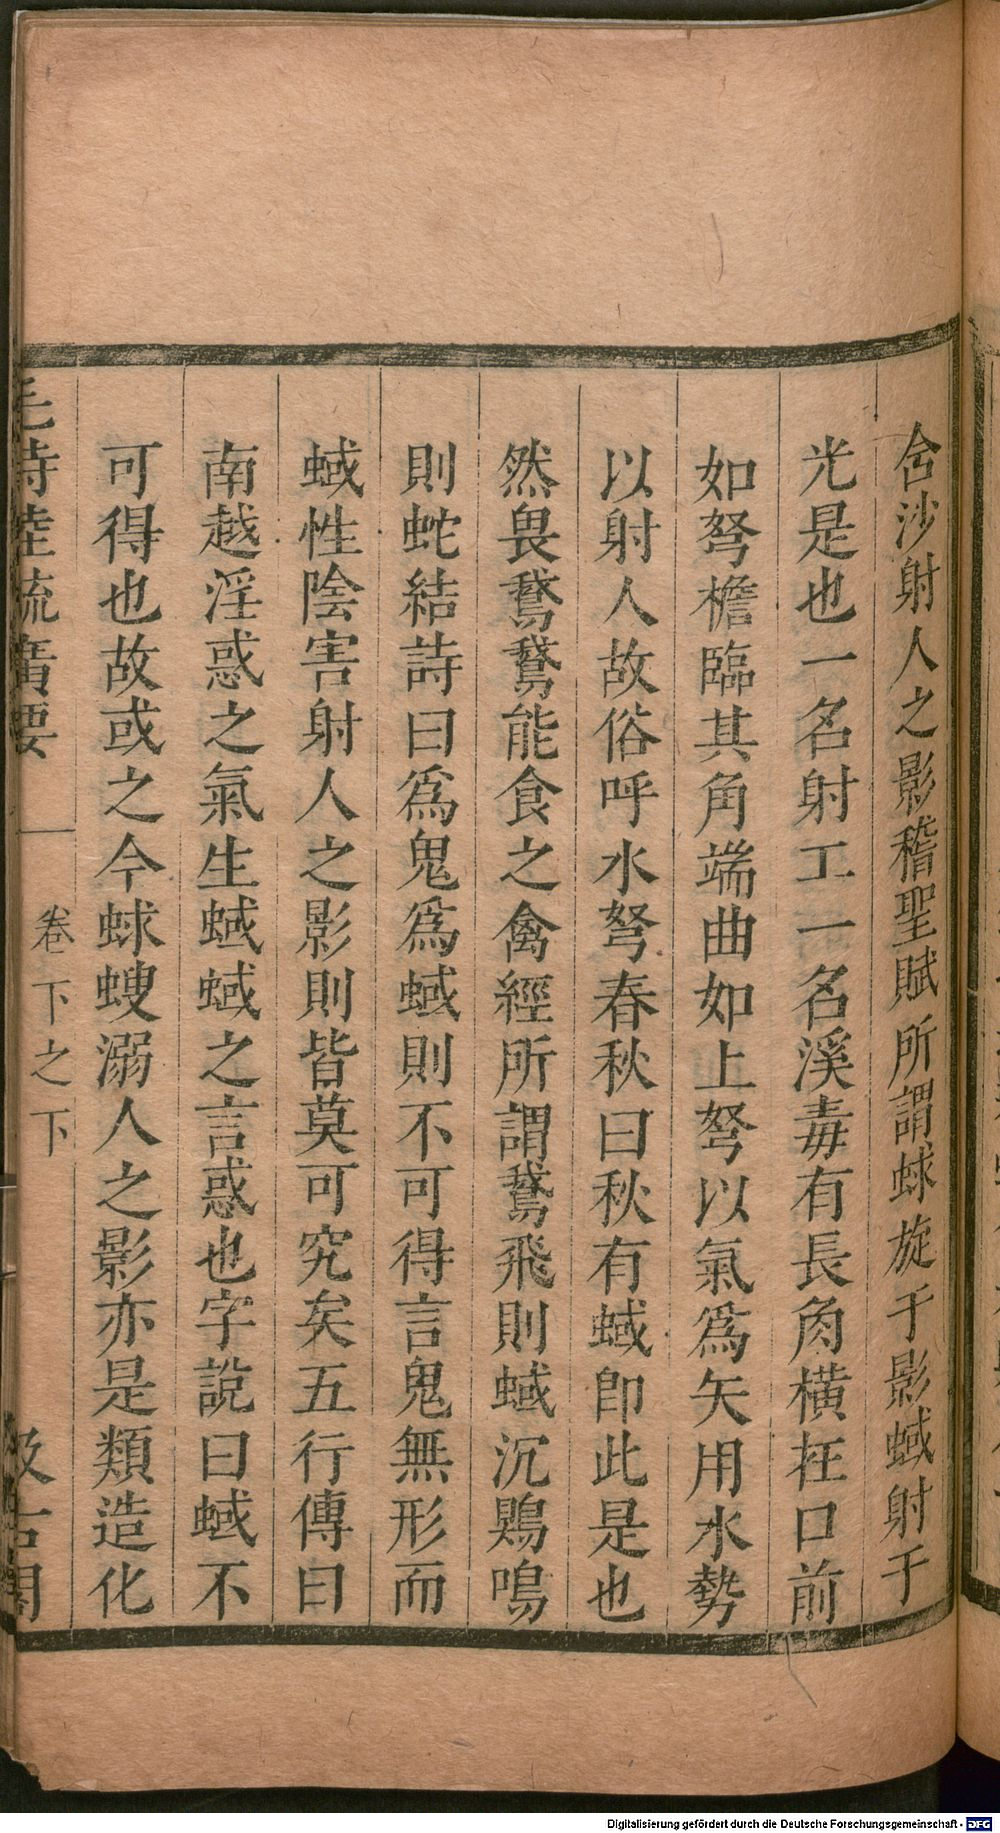 含沙射人之影稽聖賦所謂蛷旋于影蜮射于
光是也一名射工一名溪毒有長角橫在口前
如弩檐臨其角端曲如上弩以氣爲矢用水勢
以射人故俗呼水弩春秋曰秋有蜮卽此是也
然畏鵞鵞能食之禽經所謂鵞飛則蜮沉鶪鳴
則蛇結詩曰爲鬼爲蜮則不可得言鬼無形而
蜮性陰害射人之影則皆莫可究矣五行傳曰
南越淫惑之氣生蜮蜮之言惑也字說曰蜮不
可得也故或之今蛷螋溺人之影亦是類造化
毛詩陸疏廣要
卷下之下
汲古閣
Digitalisierung gefördert durch die Deutsche Forschungsgemeinschaft - DFG